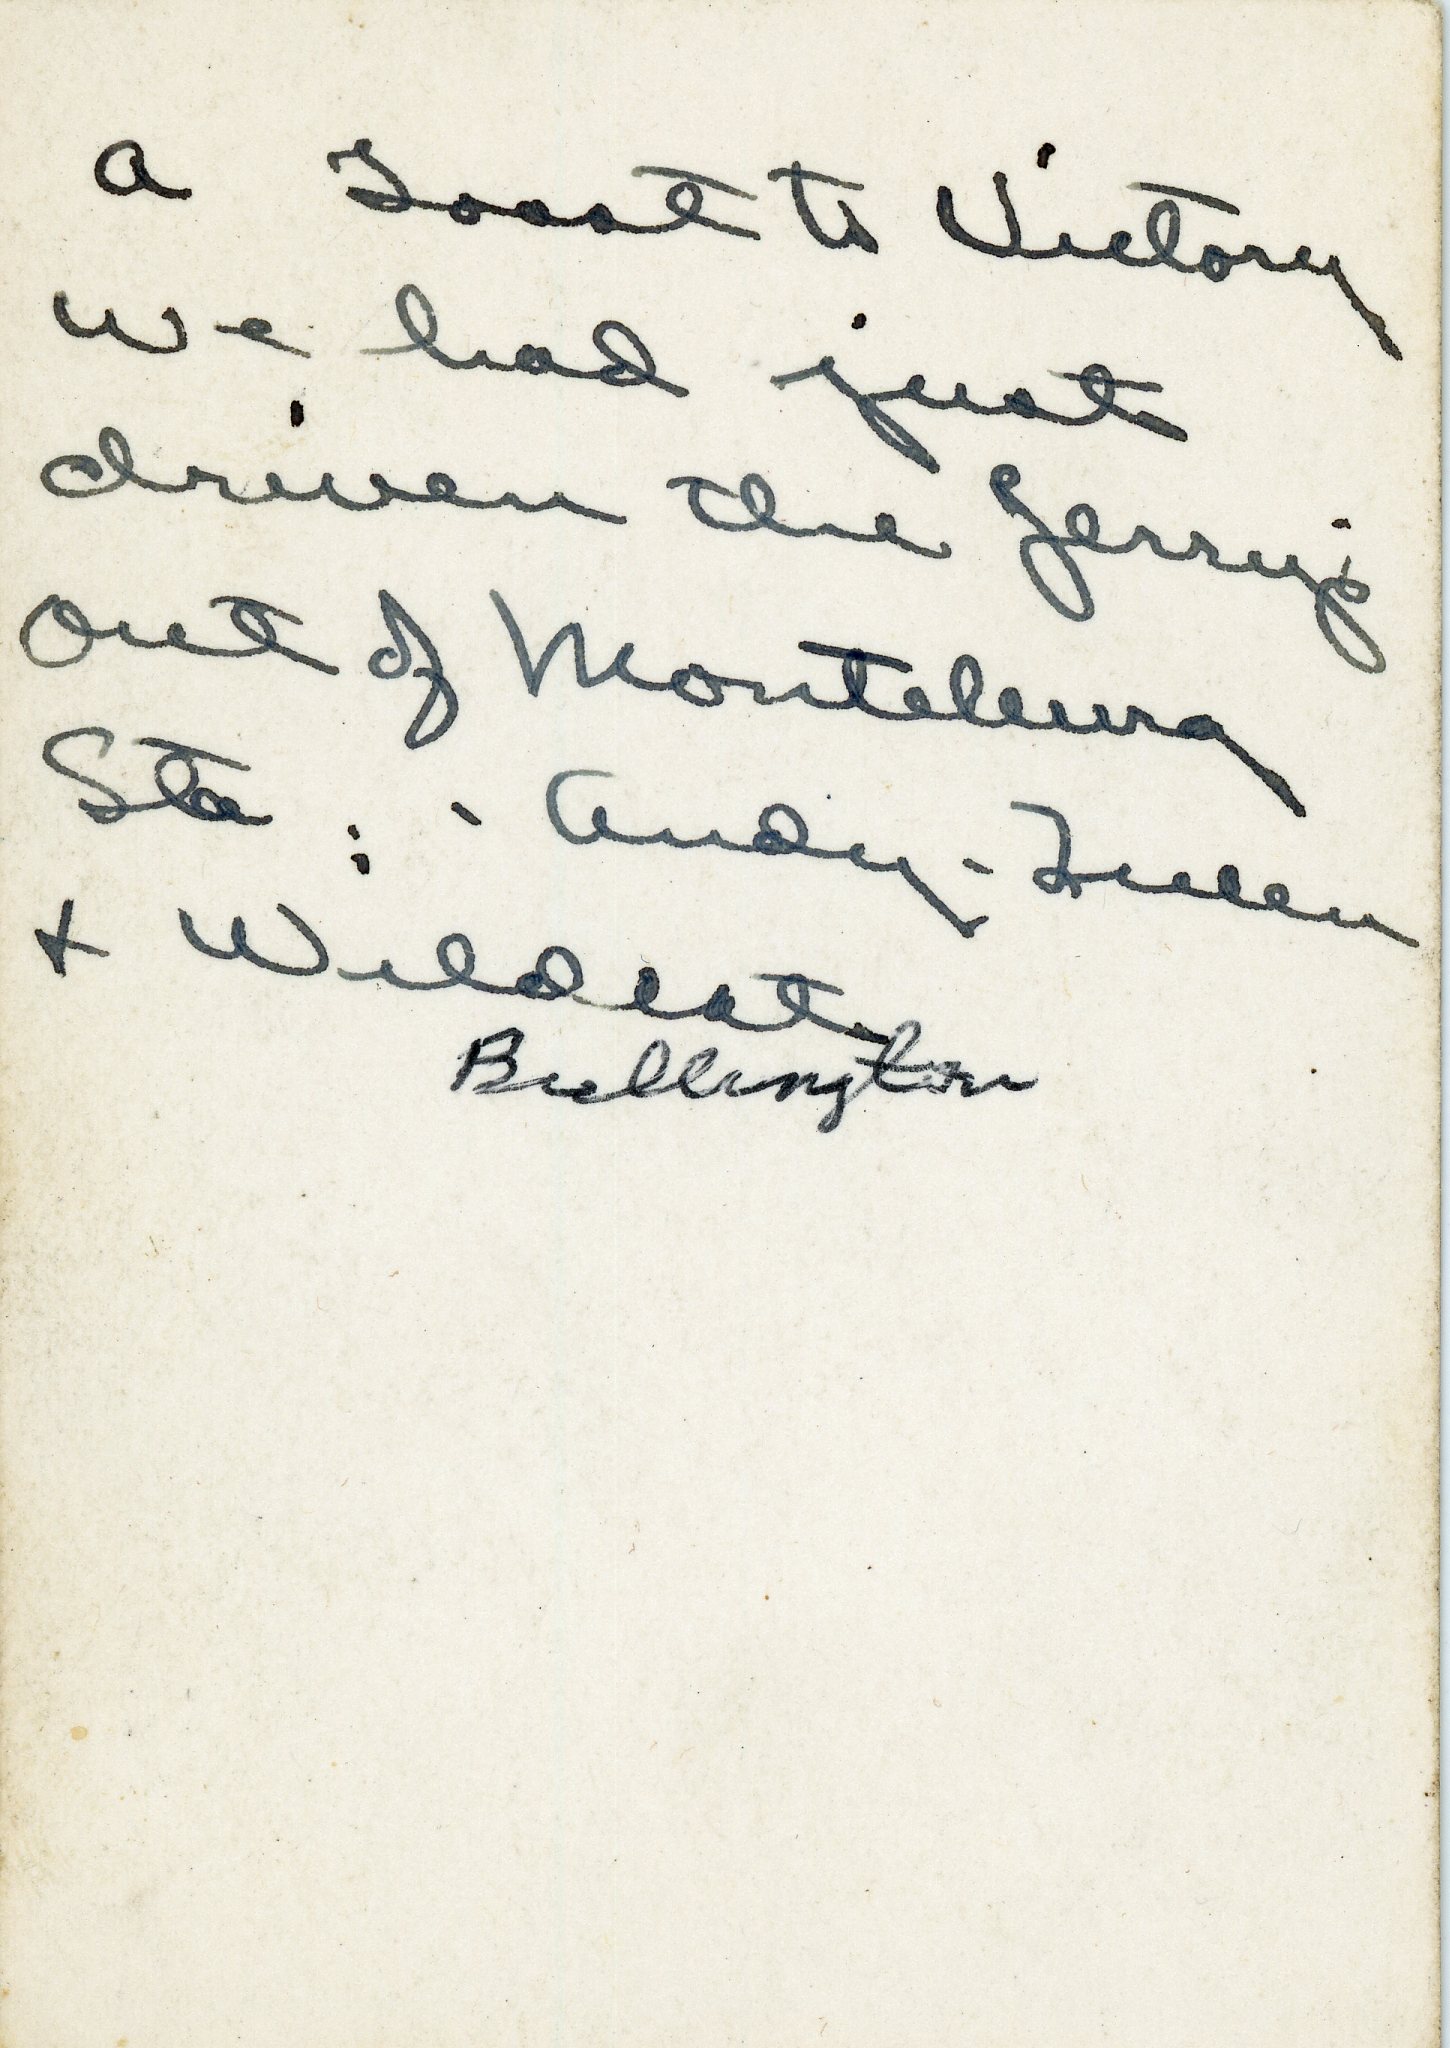 a Toast to Victory
we had just
driven the Jerry's
out of Monteburg
Sta. - Andy - Tulen
+ Wildcat
Bullington